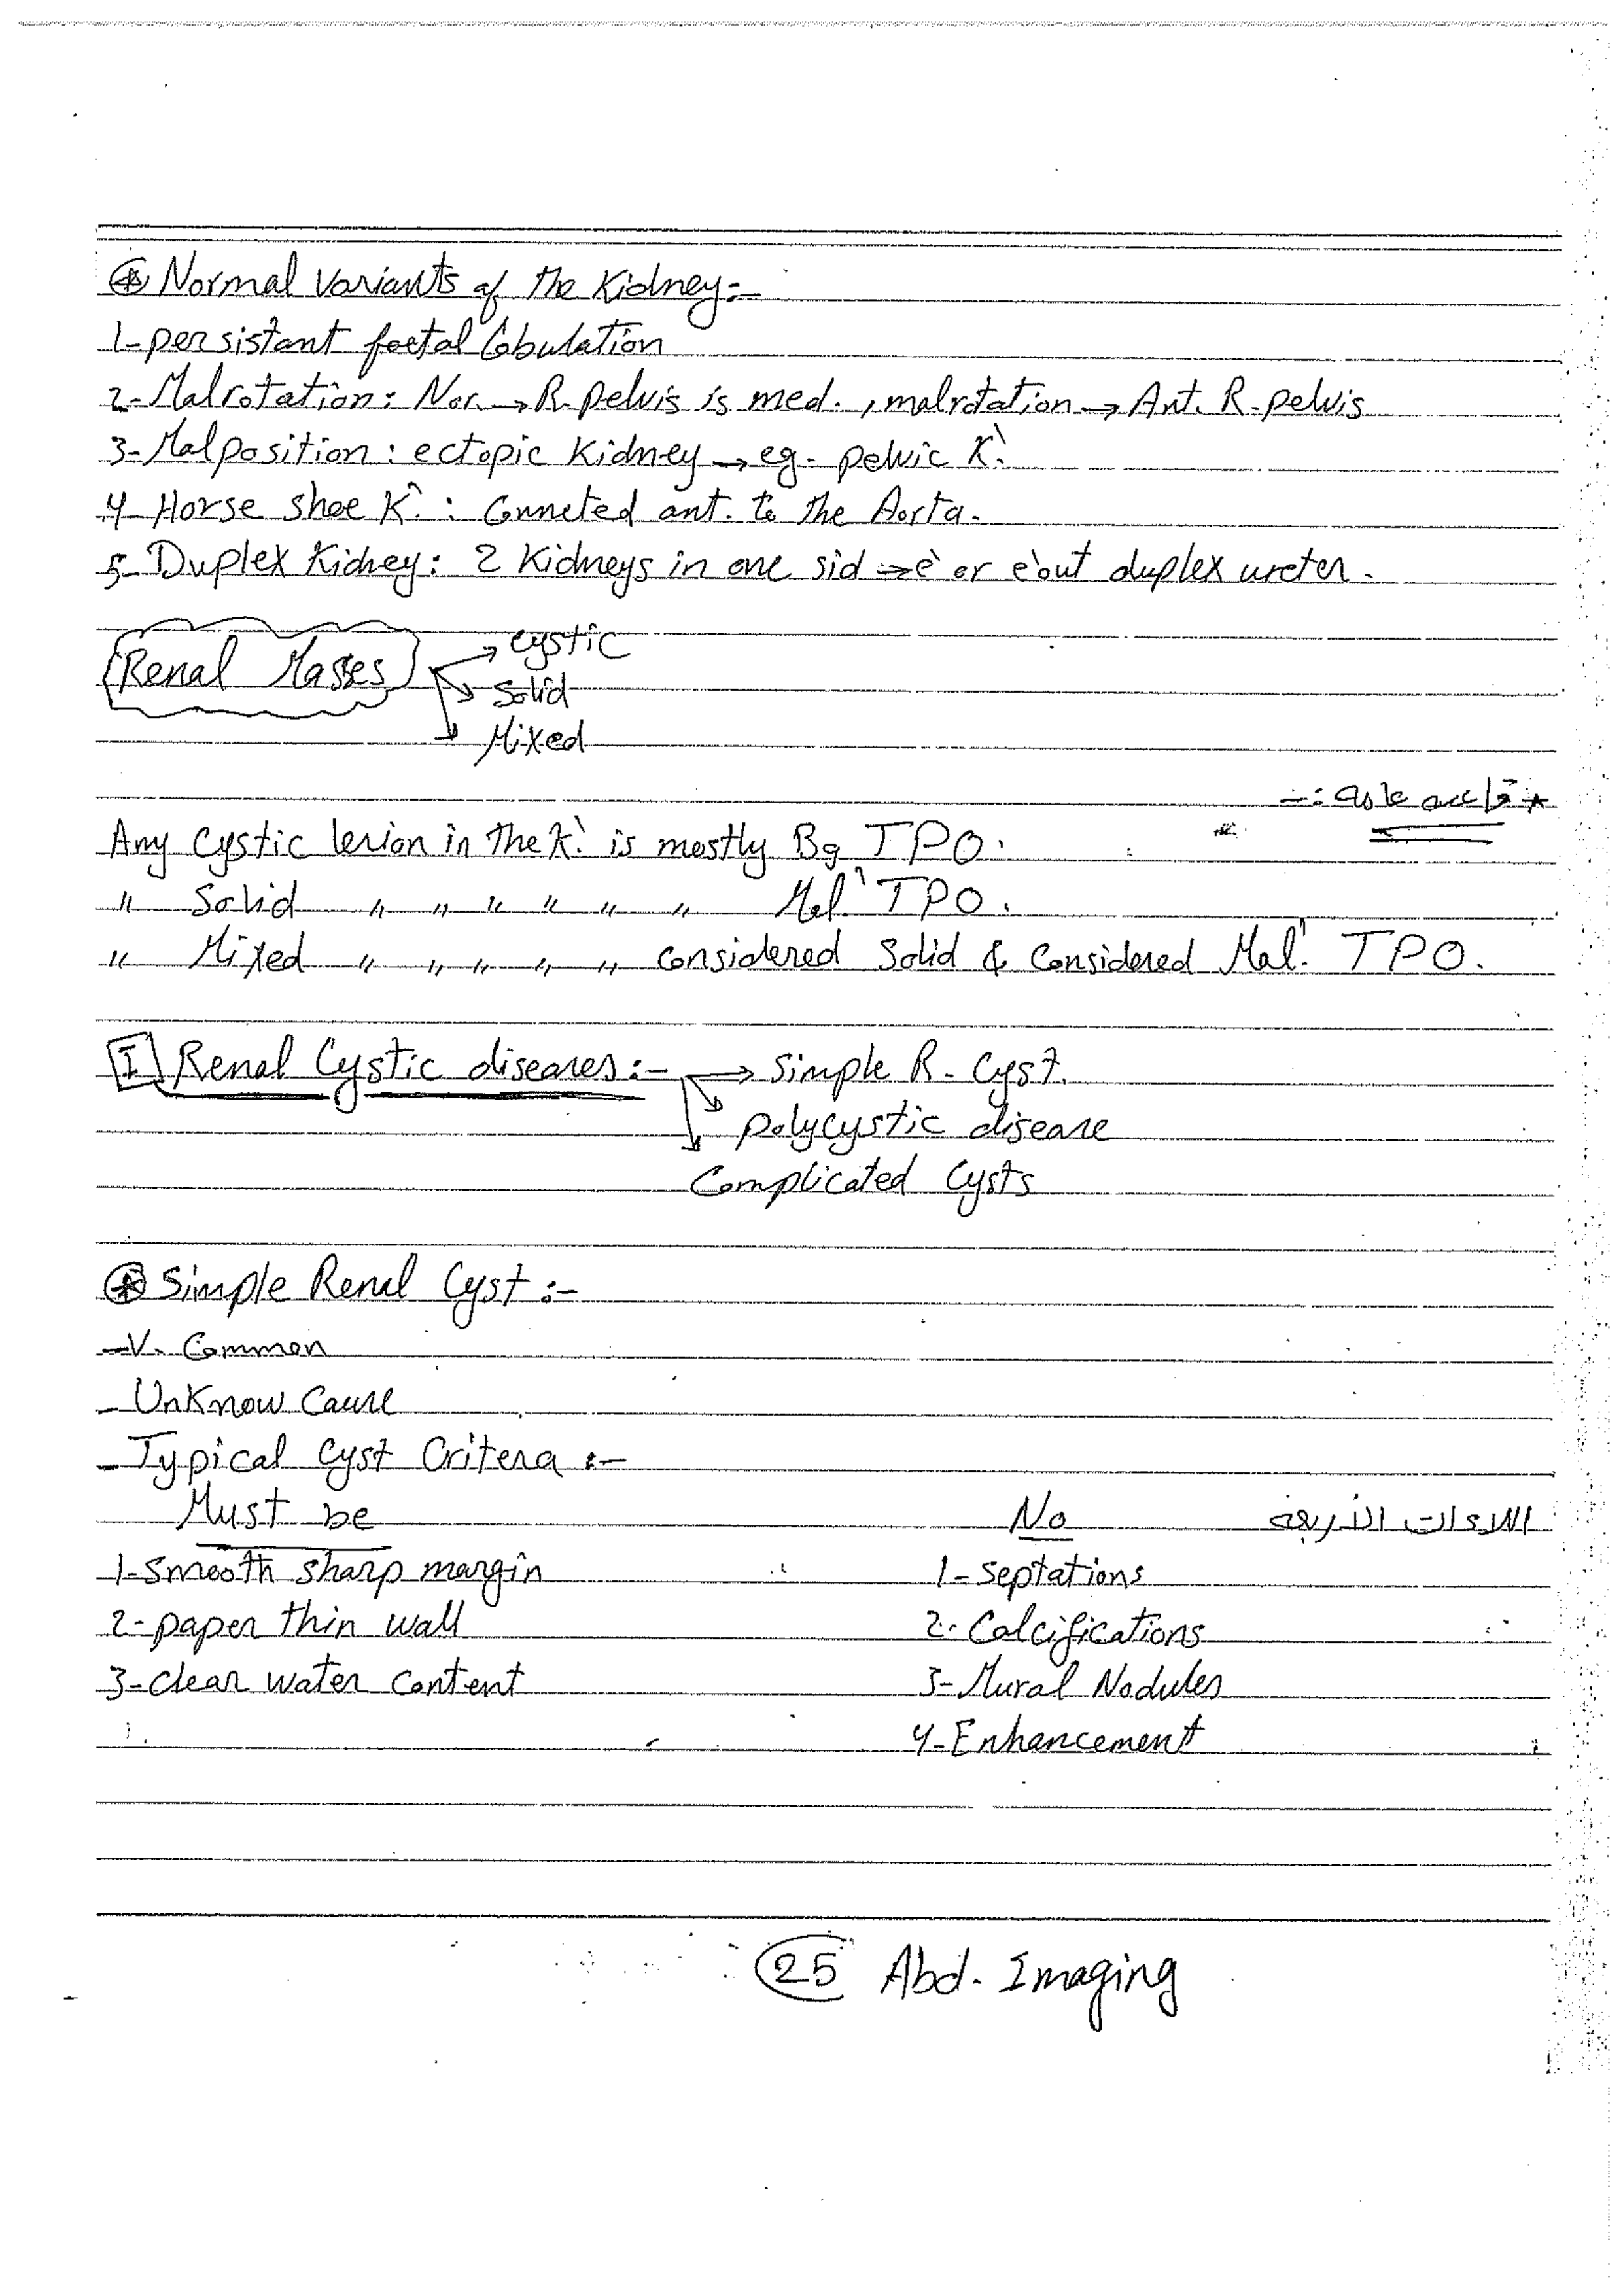 ⊛ Normal Variants of the Kidney:-
1-persistant foetal lobulation
2-Malrotation: Nor. → R.pelvis is med. , malrotation → Ant. R.pelvis
3-Malposition: ectopic Kidney → eg. pelvic K`.
4-Horse shoe K`. : Conncted ant. to the Aorta.
5-Duplex Kidney: 2 Kidneys in one sid → è or èout duplex ureter.
Renal Masses → cystic
→ Solid
→ Mixed
* قاعدة عامة :-
Any Cystic lesion in the K`. is mostly Bg TPO.
" Solid " " " " " " Mal`. TPO.
" Mixed " " " " " considered Solid & Considered Mal`. TPO.
I Renal Cystic diseases:- → Simple R. Cyst.
→ polycystic disease
→ Complicated Cysts
⊛ Simple Renal Cyst:-
-V. Common
- UnKnow Cause
- Typical Cyst Critera :-
Must be No اللاءات الأربعة
1-smooth sharp margin 1- septations
2-paper thin wall 2- Calcifications
3-clear water content 3- Mural Nodules
4-Enhancement
25 Abd. Imaging